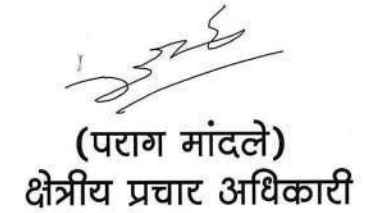 (पराग मांदले)
क्षेत्रीय प्रचार अधिकारी